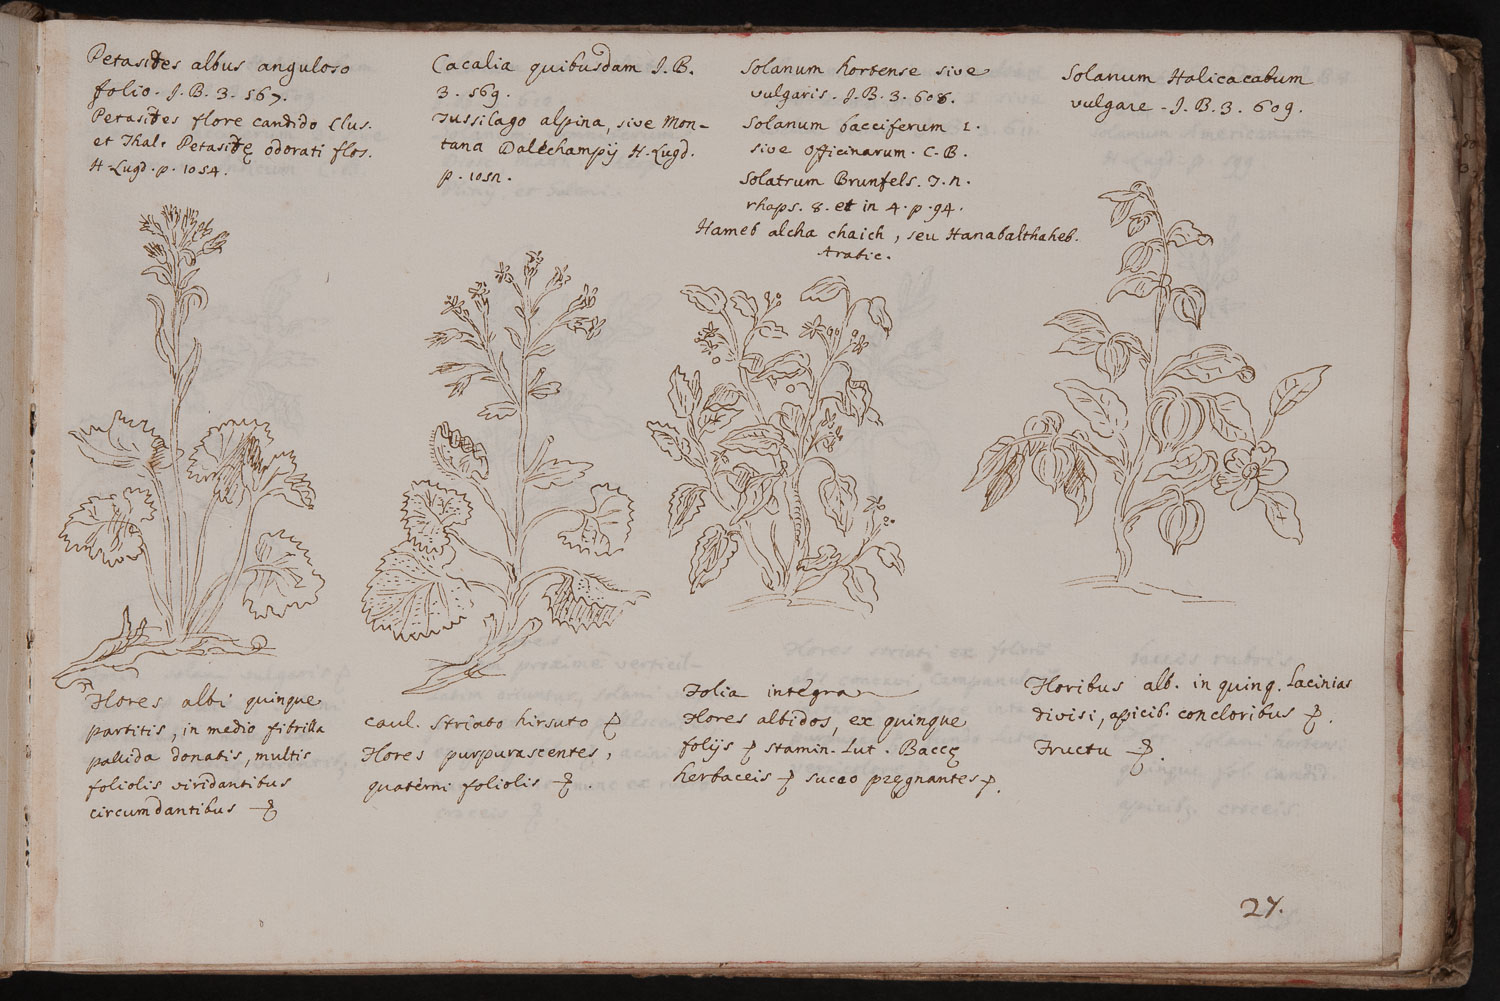 Petasites albus anguloso
folio. I. B. 3. 567.
Petasites flore candido Clus.
et Thal. Petasitę odorati flos.
H. Lugd. p. 1054.
Cacalia quibusdam I. B.
3. 569.
Tussilago alpina, sive Mon-
tana Dalechampij H. Lugd.
p. 1052.
Solanum hortense sive
vulgaris. I. B. 3. 608.
Solanum bacciferum 1.
sive officinarum. C. B.
Solatrum Brunfels. J. n.
rhaps. 8. et in 4. p. 94.
Hameb alcha chaich, seu Hanabalthaheb.
Arabic.
Solanum Halicacabum
vulgare - I. B. 3. 609.
Flores albi quinque
partitis, in medio fibrilla
pallida donatis, multis
foliolis viridantibus
circumdantibus
caul. striato hirsuto
Flores purpurascentes,
quaterni foliolis
Folia integra
Flores albidos, ex quinque
folijs stamin. Lut. Baccę
herbaceis succo pręgnantes
Floribus alb. in quinq. Lacinias
divisi, apicib. concloribus
Fructu
27.